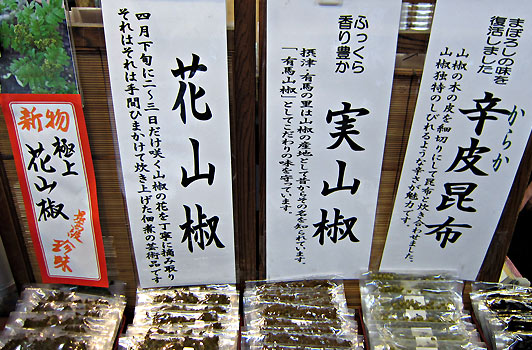 まぼろしの味を
復活しました
からか
辛皮昆布
山椒の木の皮を細切りにして昆布と炊き合わせました。
山椒独特のしびれるような辛さが魅力です。
ふっくら
香り豊か
実山椒
摂津・有馬の里は山椒の産地として昔からその名を知られています。
「有馬山椒」としてこだわりの味を守っています。
花山椒
四月下旬に二〜三日だけ咲く山椒の花を丁寧に摘み取り
それはそれは手間ひまかけて炊き上げた佃煮の芸術品です
新物
極上
花山椒
珍味